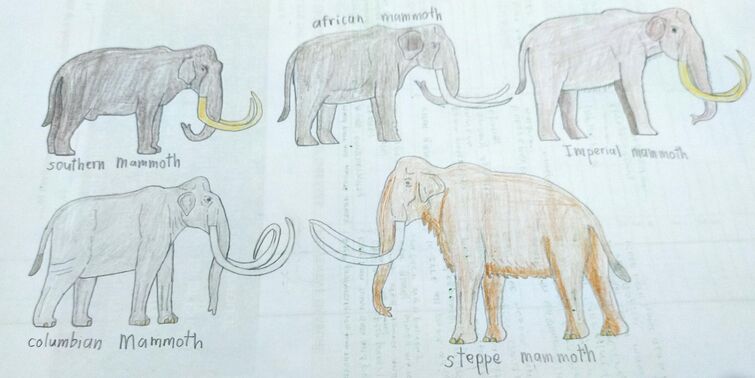 african mammoth
southern mammoth
Imperial mammoth
columbian Mammoth
steppe mammoth